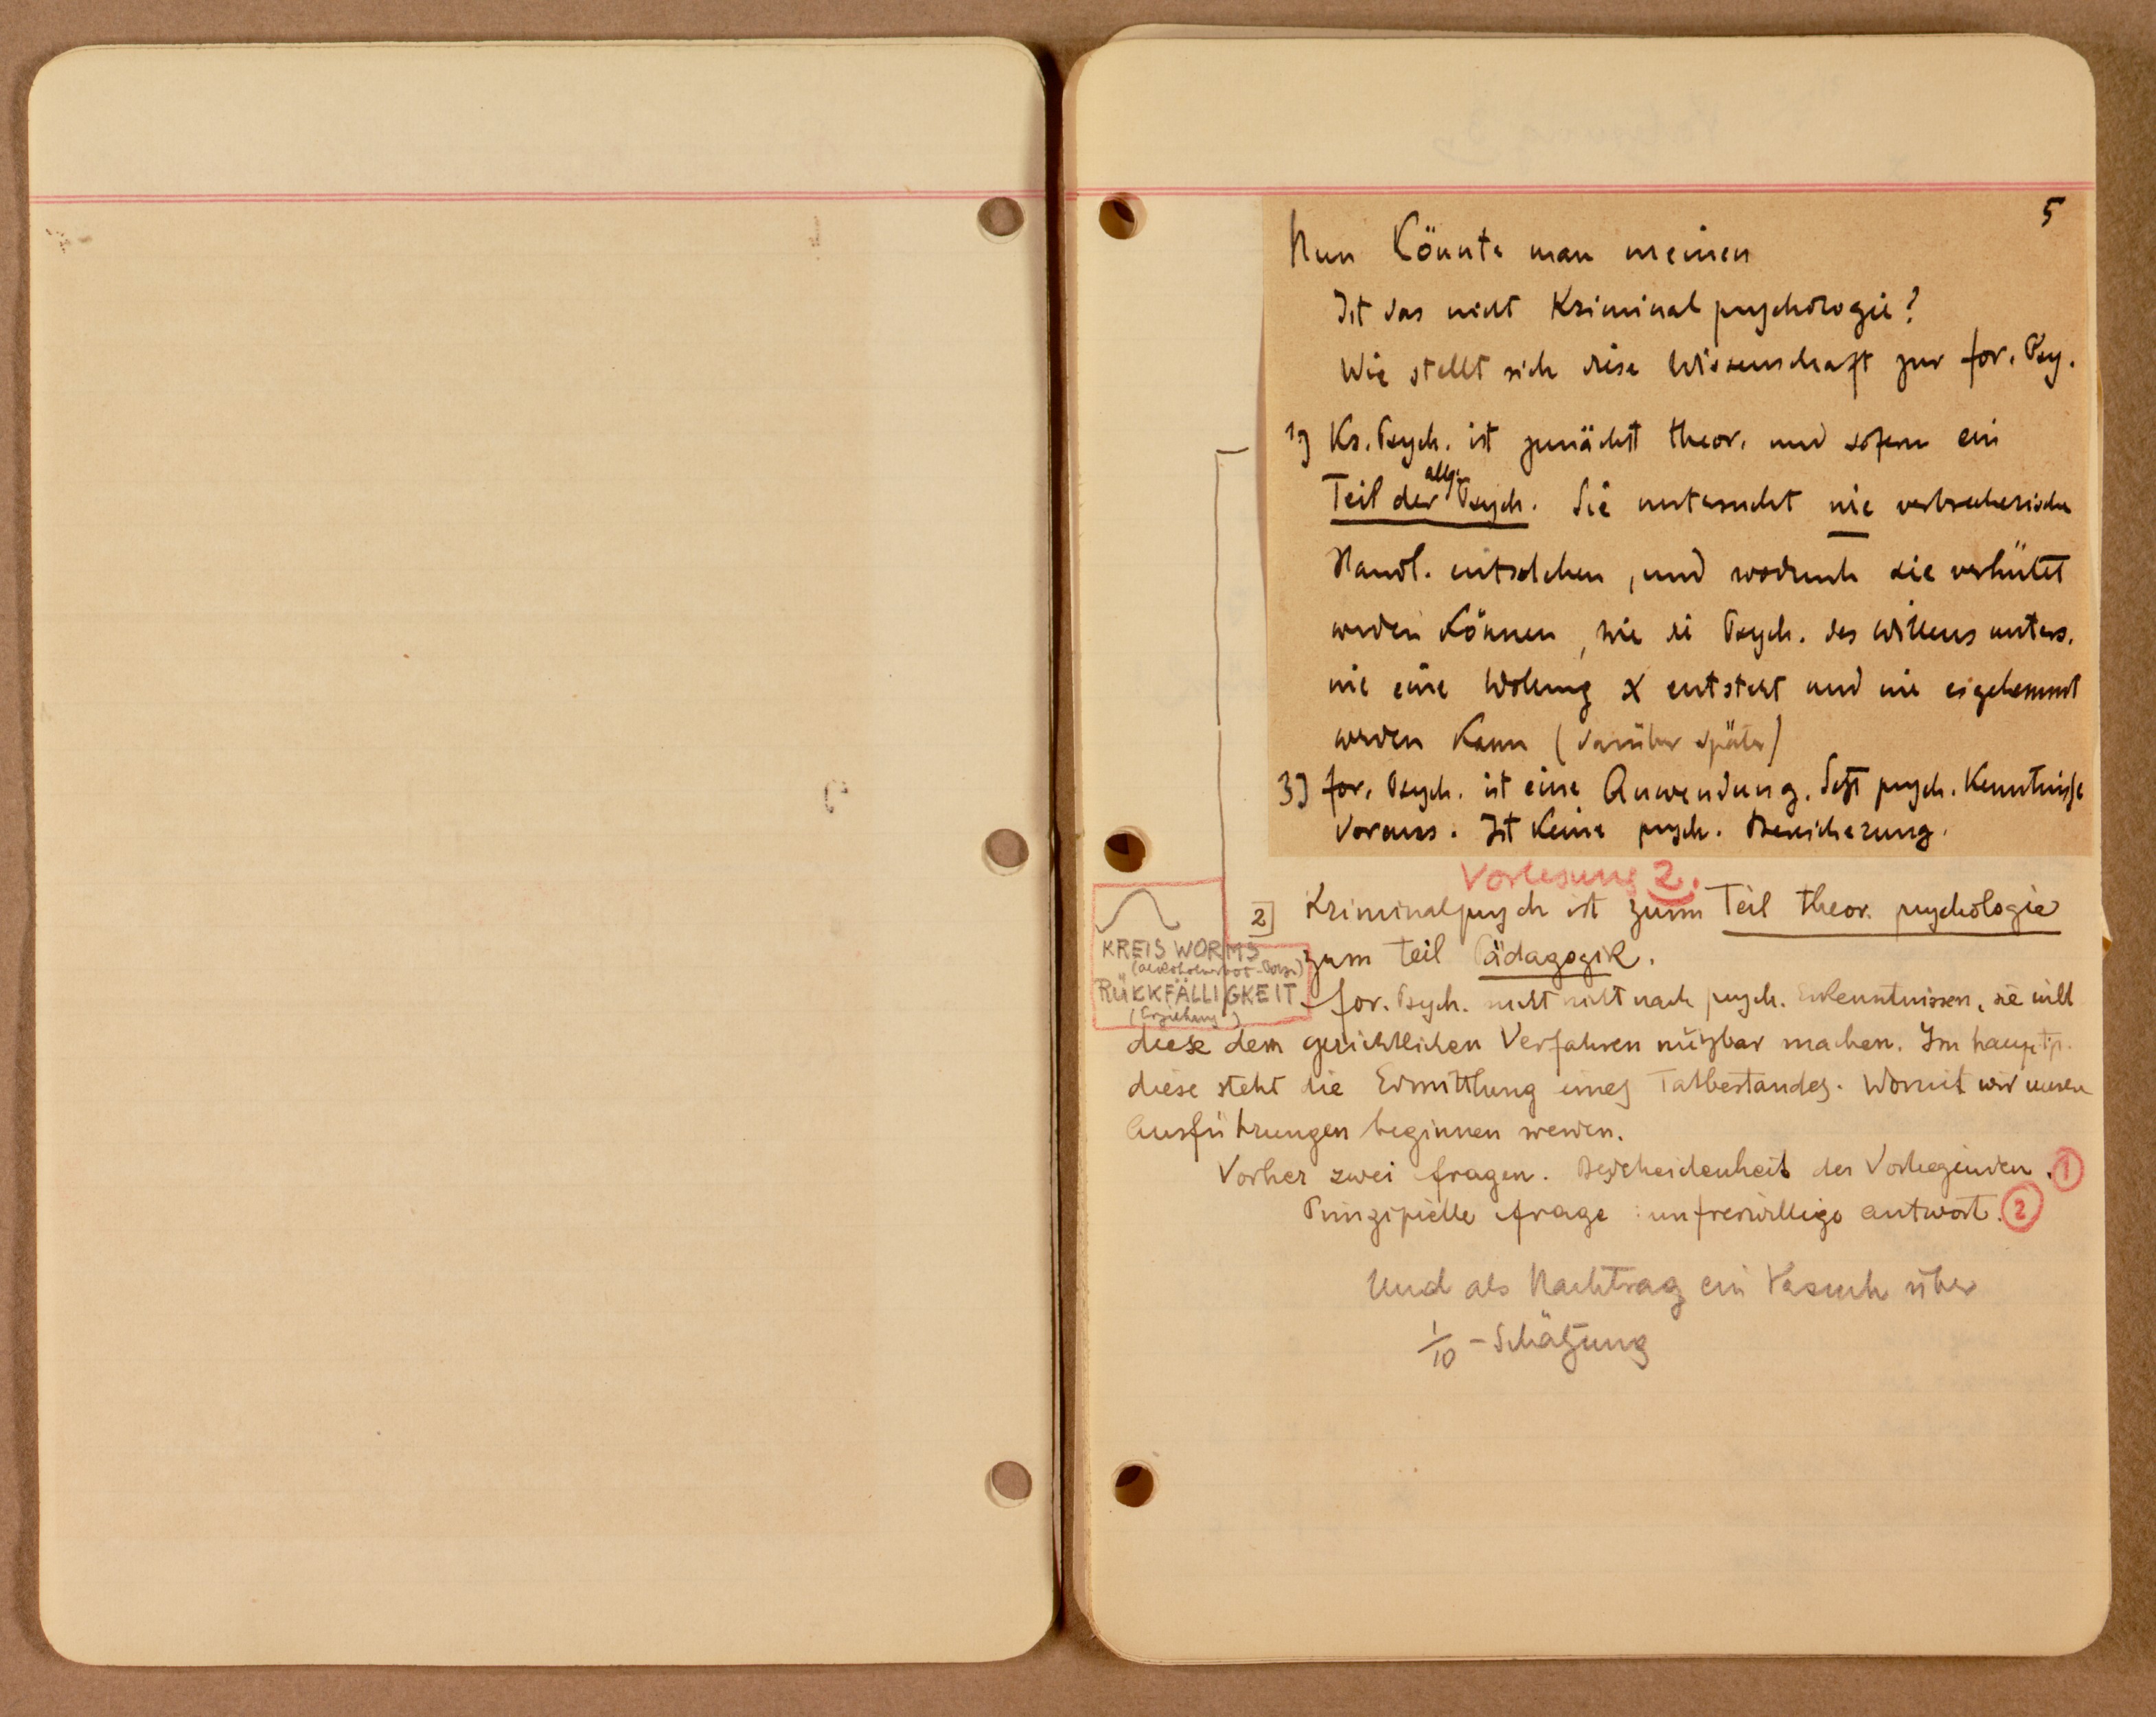 5
Nun könnte man meinen
Ist das nicht Kriminalpsychologie?
Wie stellt sich diese Wissenschaft zur for. Psy.
1) Kr. Psych. ist zunächst theor. und sofern ein
Teil der allg. Psych. Sie untersucht wie verbrecherische
Handl. entstehen, und wodurch sie verhütet
werden können, wie die Psych. des Willens unters.
wie eine Wollung X entsteht und wie es gehemmt
werden kann (darüber später)
3) for. Psych. ist eine Anwendung. Setzt psych. Kenntnisse
voraus. Ist keine psych. Bereicherung.
Vorlesung 2.
2] Kriminalpsych ist zum Teil theor. psychologie
zum Teil Pädagogik.
KREIS WORMS
RÜKKFÄLLIGKEIT
(Erziehung)
for. Psych. sucht nicht nach psych. Erkenntnissen, sie will
diese dem gerichtlichen Verfahren nützbar machen. Im hauptp.
diese steht die Ermittlung eines Tatbestandes. Womit wir unsere
Ausführungen beginnen werden.
Vorher zwei fragen. Bescheidenheit des Vorliegenden. 1
Prinzipielle frage : unfreiwillige antwort. 2
Und als Nachtrag ein Versuch über
1/10 - Schätzung